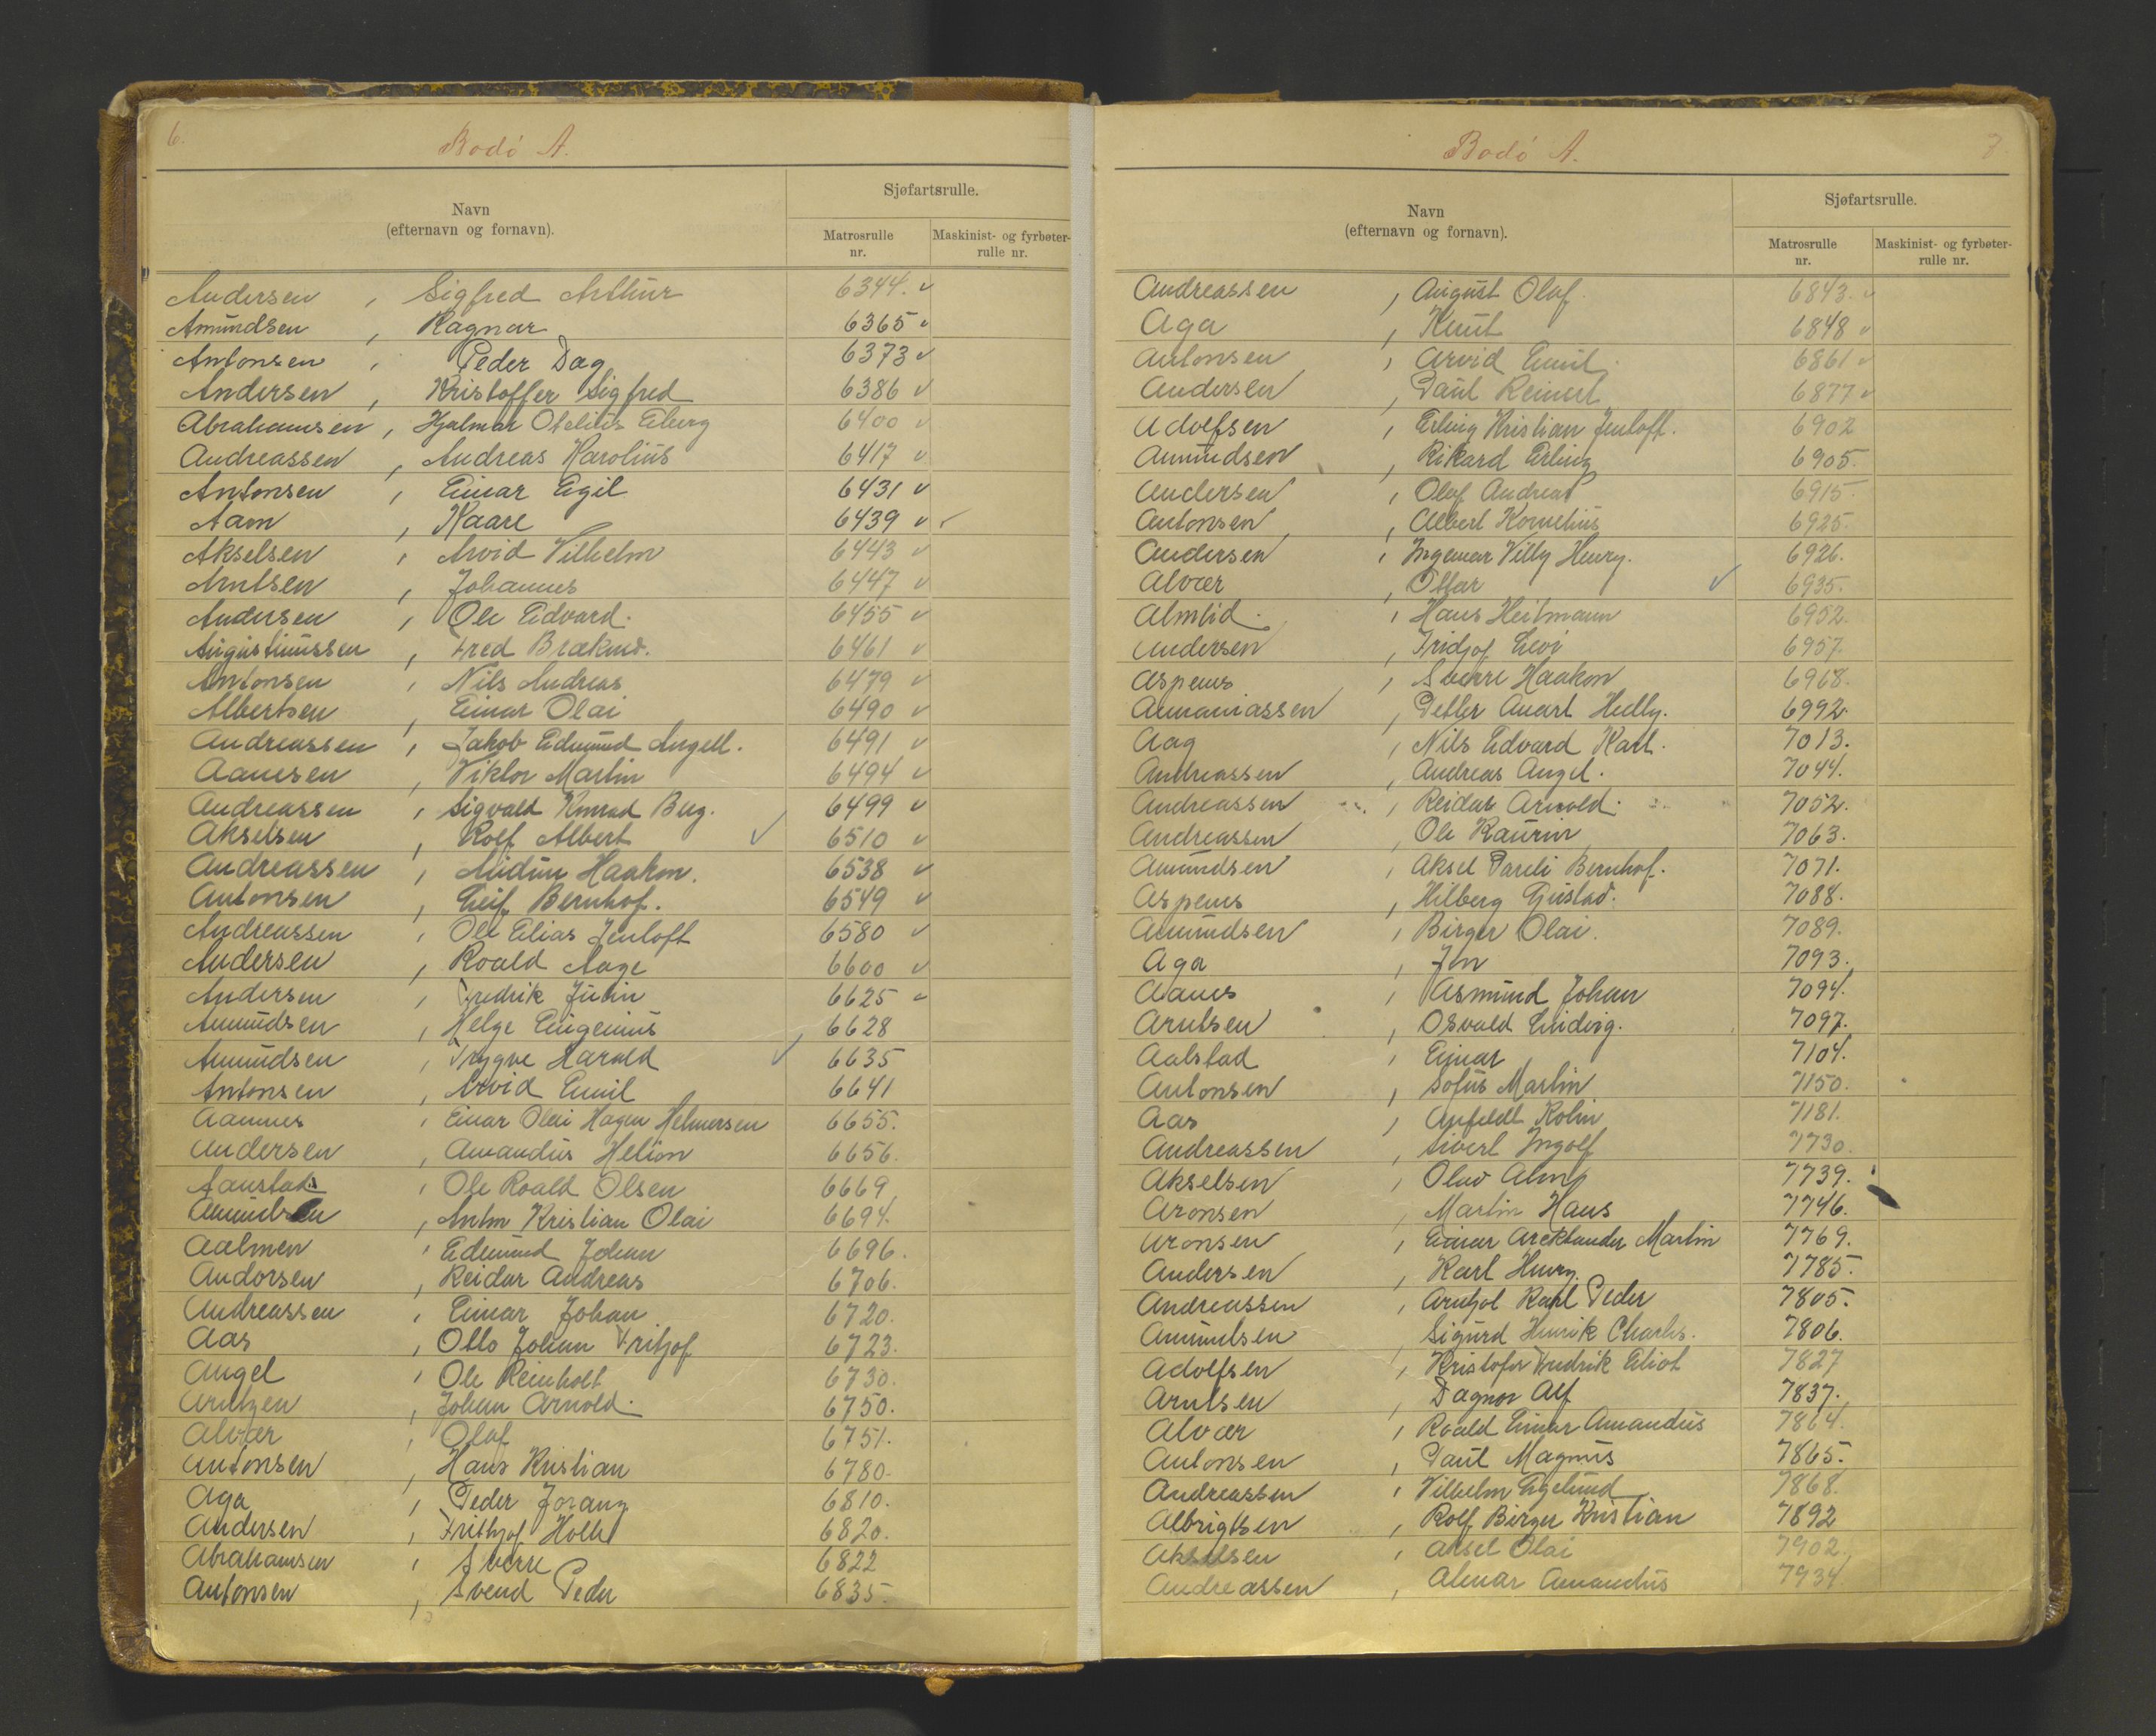 6.
Bodö A.
Navn
(efternavn og fornavn).
Sjøfartsrulle.
Matrosrulle
nr.
Maskinist- og fyrbøter-
rulle nr.
Andersen , Sigfred Arthur 6344. v
Amundsen , Ragnar 6365 v
Antonsen , Peder Dag 6373 v
Andersen , Kristoffer Sigfred 6386 v
Abrahamsen , Hjalmar Otelius Eiberg 6400 v
Andreassen , Andreas Harolius 6417 v
Antonsen , Einar Egil 6431 v
Aam , Kaare 6439 v
Akselsen , Arvid Vilhelm 6443 v
Arntsen , Johannes 6447 v
Andersen , Ole Edvard. 6455 v
Augustinussen , Fred Brækmo. 6461 v
Antonsen , Nils Andreas 6479 v
Albertsen , Einar Olai 6490 v
Andreassen , Jakob Edmund Angell. 6491 v
Aanesen , Viktor Martin 6494 v
Andreassen , Sigvald Konrad Berg. 6499 v
Akselsen , Rolf Albert ✓ 6510 v
Andreassen , Audun Haakon. 6538 v
Antonsen , Leif Bernhof. 6549 v
Andreassen , Ole Elias Jenloft 6580 v
Andersen , Roald Aage 6600 v
Andersen , Fredrik Julin 6625 v
Amundsen , Helge Eugenius 6628
Amundsen , Trygve Harald ✓ 6635
Antonsen , Arvid Emil 6641
Aannes , Einar Olai Hagen Helmersen 6655.
Andersen , Amandus Helion 6656.
Aanstad , Ole Roald Olsen 6669
Amundsen , Anton Kristian Olai 6694.
Aalmen , Edmund Johan 6696.
Andorsen , Reidar Andreas 6706.
Andreassen , Einar Johan 6720.
Aas , Otto Johan Fritjof 6723.
Angel , Ole Reinholt 6730.
Arntzen , Johan Arnold. 6750.
Alvær , Olaf 6751.
Antonsen , Hans Kristian 6780.
Aga , Peder 6810.
Andersen , Frithjof Holte 6820.
Abrahamsen , Sverre 6822
Antonsen , Svend Peder 6835.
Bodö A.
7.
Navn
(efternavn og fornavn).
Sjøfartsrulle.
Matrosrulle
nr.
Maskinist- og fyrbøter-
rulle nr.
Andreassen , August Olaf. 6843. v
Aga , Knut 6848 v
Antonsen , Arvid Emil. 6861 v
Andersen , Paul Reinert 6877 v
Adolfsen , Erling Kristian Jenloft. 6902
Amundsen , Rikard Erling 6905.
Andersen , Olaf Andreas 6915.
Antonsen , Albert Kornelius 6925.
Andersen , Ingemar Villy Henry. 6926.
Alvær , Ottar ✓ 6935.
Almlid. , Hans Heitmann 6952.
Andersen , Fridjof Levi 6957.
Aspenes , Sverre Haakon 6968.
Annaniassen , Petter Anart Helly. 6992.
Aag , Nils Edvard Karl. 7013.
Andreassen , Andreas Angel. 7044.
Andreassen , Reidar Arnold. 7052.
Andreassen , Ole Kaurin 7063.
Amundsen , Aksel Pareli Bernhof. 7071.
Aspenes , Hilberg Gustad. 7088.
Amundsen , Birger Olai. 7089.
Aga , Jon 7093.
Aanes , Asmund Johan 7094.
Arntsen , Osvald Ludvig. 7097.
Aalstad , Einar 7104.
Antonsen , Sofus Martin 7150.
Aas , Anfeldt Robin 7181.
Andreassen , Sivert Ingolf 7730.
Akselsen , Olav Alm 7739.
Aronsen , Martin Hans 7746.
Aronsen , Einar Areklander Martin 7769.
Andersen , Karl Henry. 7785.
Andreassen , Arntjol Karl Peder 7805.
Amundsen , Sigurd Henrik Charles. 7806.
Adolfsen , Kristofer Fredrik Eliot 7827
Arntsen , Dagnor Alf 7837.
Alvær , Roald Einar Amandus 7864.
Antonsen , Paul Magnus 7865.
Andreassen , Vilhelm Egelund 7868.
Albrigtsen , Rolf Birger Kristian 7892
Akselsen , Aksel Olai 7902.
Andreassen , Almar Amandus 7934.